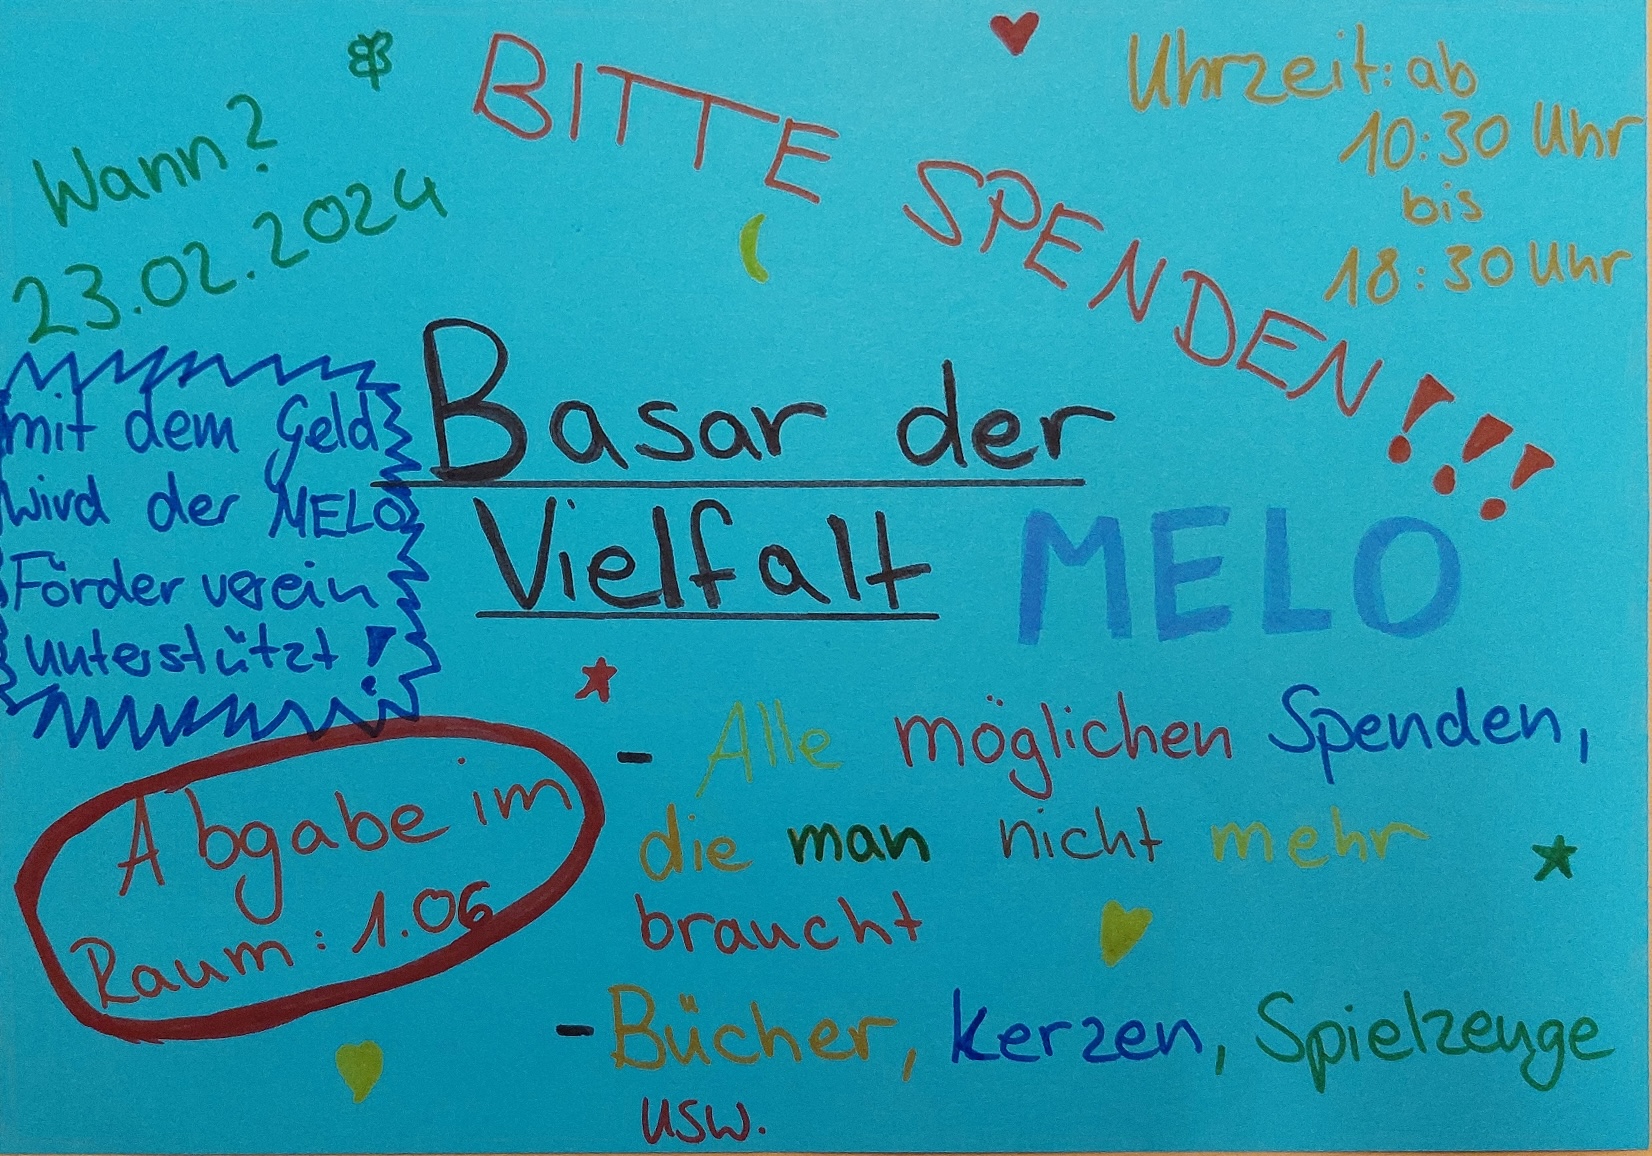 BITTE SPENDEN!!!
Wann?
23.02.2024
Uhrzeit: ab
10:30 Uhr
bis
18:30 Uhr
Basar der
Vielfalt
MELO
mit dem Geld
wird der MELO
Förderverein
unterstützt!
Abgabe im
Raum: 1.06
- Alle möglichen Spenden,
die man nicht mehr
braucht
- Bücher, Kerzen, Spielzeuge
usw.